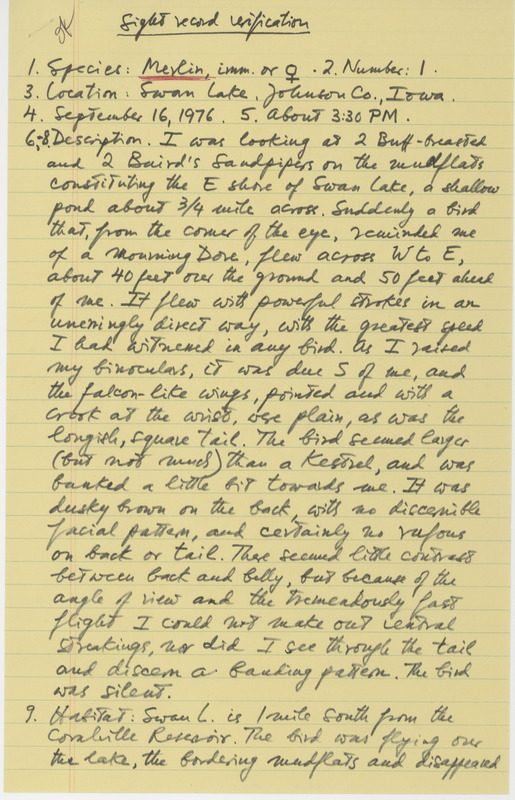 Sight record verification
1. Species: Merlin, imm. or ♀. 2. Number: 1.
3. Location: Swan Lake, Johnson Co., Iowa.
4. September 16, 1976. 5. About 3:30 PM.
6,-8, Description. I was looking at 2 Buff-breasted
and 2 Baird's Sandpipers on the mudflats
constituting the E shore of Swan Lake, a shallow
pond about 3/4 mile across. Suddenly a bird
that, from the corner of the eye, reminded me
of a Mourning Dove, flew across W to E,
about 40 feet over the ground and 50 feet ahead
of me. It flew with powerful strokes in an
unerringly direct way, with the greatest speed
I had witnessed in any bird. As I raised
my binoculars, it was due S of me, and
the falcon-like wings, pointed and with a
crook at the wrist, were plain, as was the
longish, square tail. The bird seemed larger
(but not much) than a Kestrel, and was
banked a little bit towards me. It was
dusky brown on the back, with no discernible
facial pattern, and certainly no rufous
on back or tail. There seemed little contrast
between back and belly, but because of the
angle of view and the tremendously fast
flight I could not make out ventral
streakings, nor did I see through the tail
and discern a banding pattern. The bird
was silent.
9. Habitat: Swan L. is 1 mile south from the
Coralville Reservoir. The bird was flying over
the lake, the bordering mudflats and disappeared